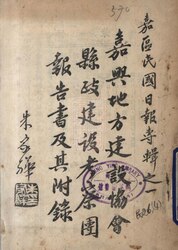 嘉區民國日報專輯之一
嘉興地方建設協會
縣政建設考察團
報告書及其附錄
朱家驊